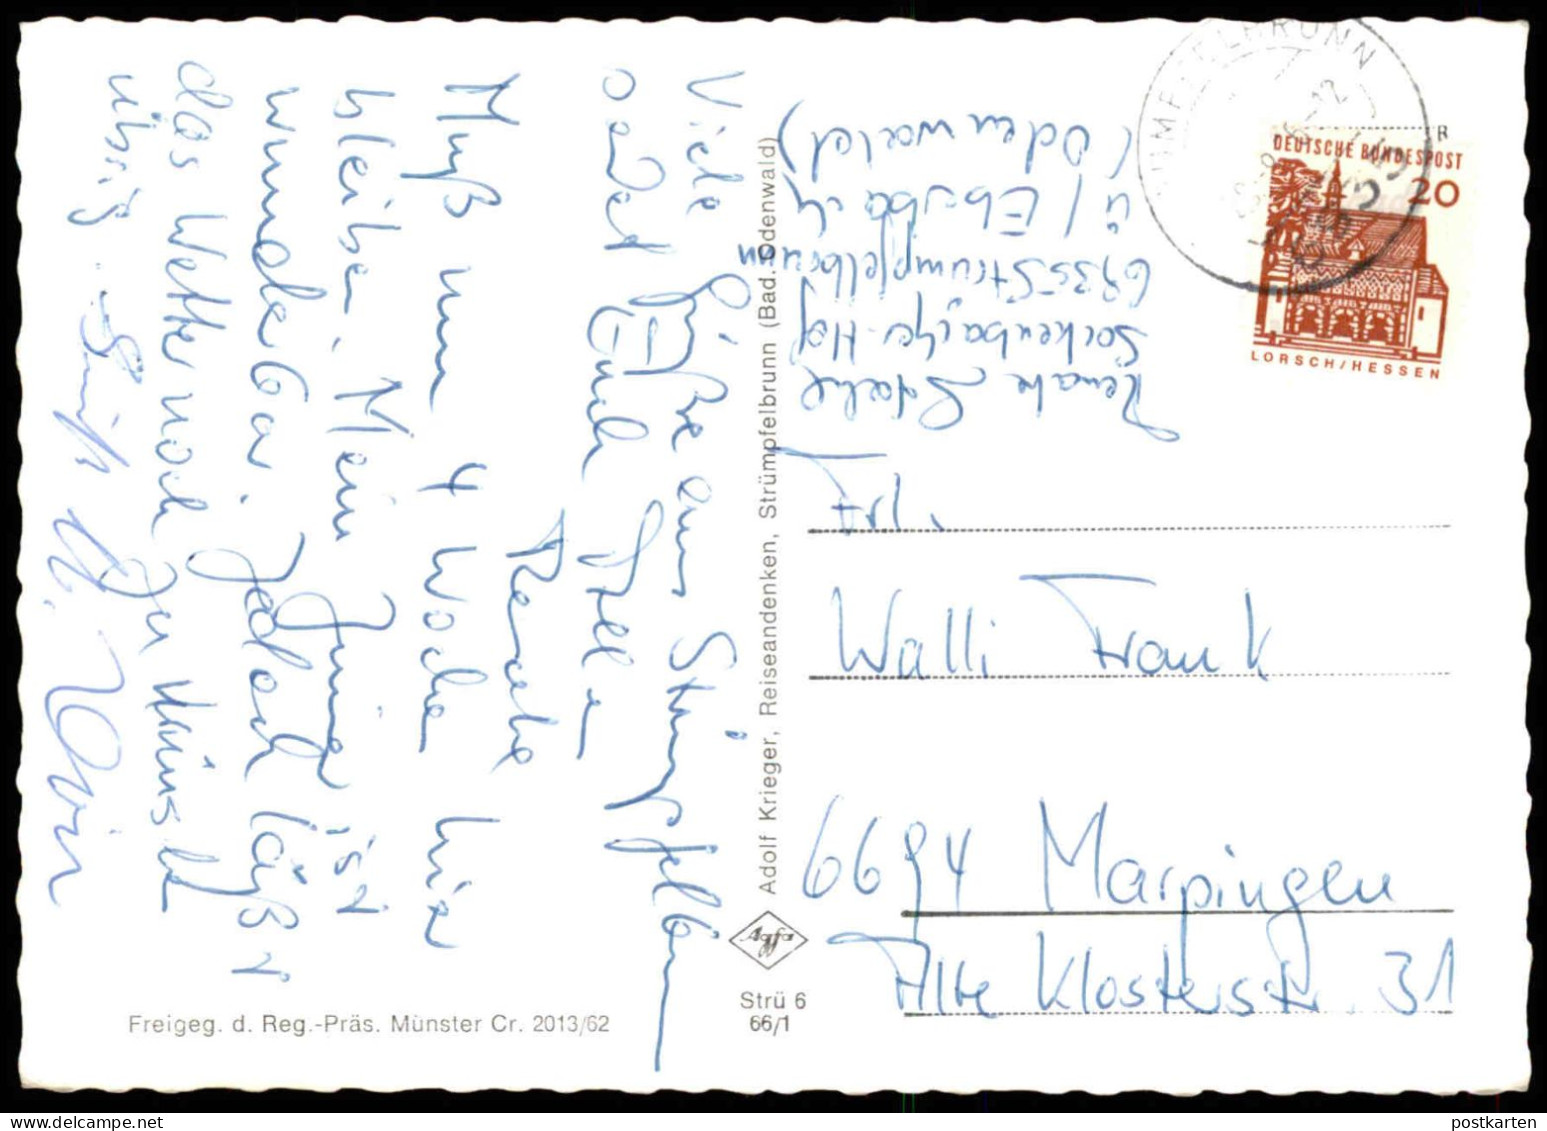 Viele Grüße aus Strümpfelbrunn
sendet Euch allen
Renate
Muß nun 4 Wochen hier
bleiben. Mein Zimmer ist
wunderbar. Jedoch läßt
das Wetter noch zu wünschen
übrig. Gruß
Renate Stahl
Sockenbacher-Hof
6935 Strümpfelbrunn
ü/Eberbach
(Odenwald)
Adolf Krieger, Reiseandenken, Strümpfelbrunn (Bad. Odenwald)
STRÜMPFELBRUNN
R
DEUTSCHE BUNDESPOST
20
LORSCH/HESSEN
Frl.
Walli Frank
6694 Marpingen
Alte Klosterstr. 31
Agfa
Strü 6
66/1
Freigeg. d. Reg.-Präs. Münster Cr. 2013/62
postkarten